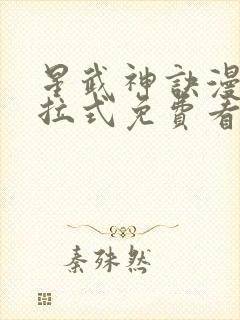 星武神訣漫
拉式免費看
秦殊然